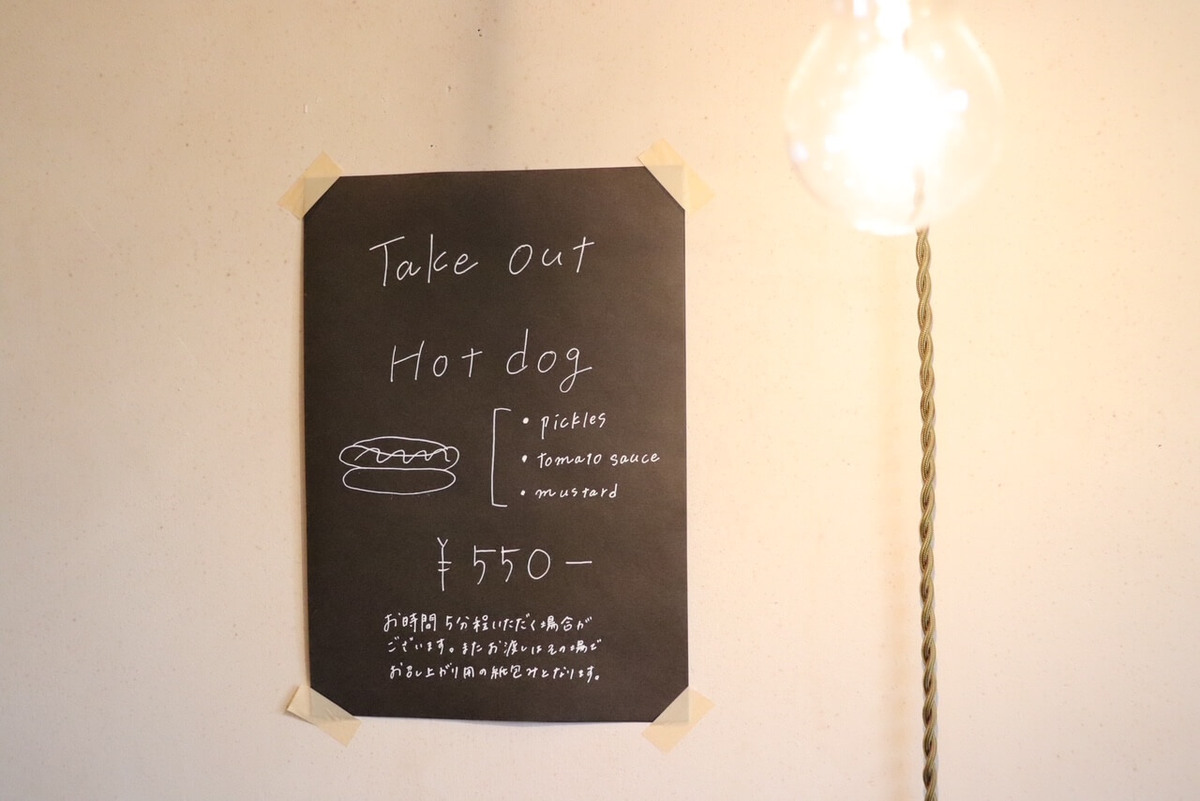 Take out
Hot dog
• pickles
• tomato sauce
• mustard
¥550ー
お時間5分程いただく場合が
ございます。またお渡しはその場で
お召し上がり用の紙包みとなります。